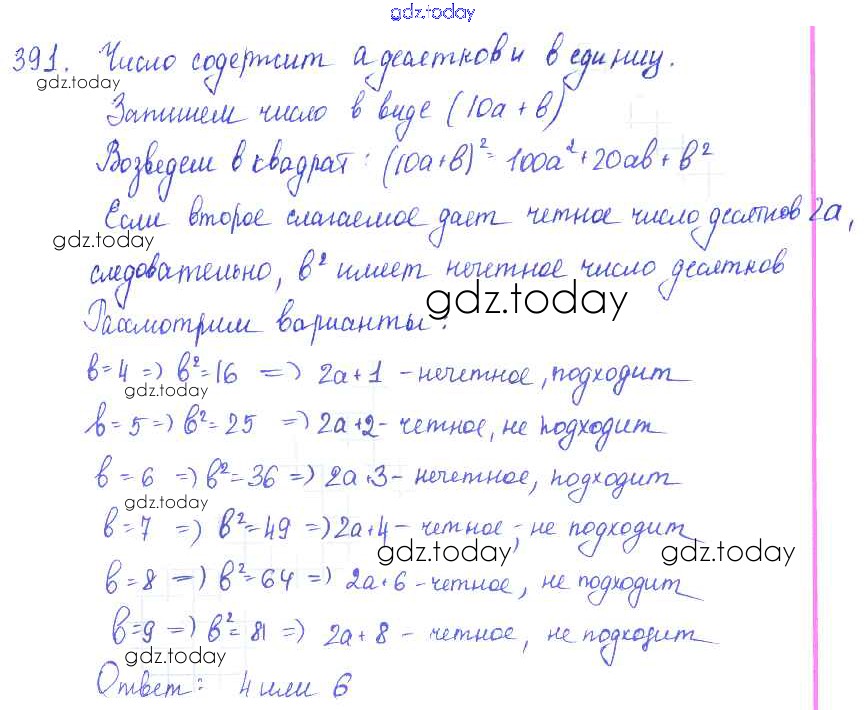 gdz.today
391. Число содержит а десятков и в единиц.
gdz.today
Запишем число в виде (10а + в)
Возведем в квадрат: (10а+в)² = 100а² + 20ав + в²
Если второе слагаемое дает четное число десятков 2а,
gdz.today
следовательно, в² имеет нечетное число десятков
gdz.today
Рассмотрим варианты:
в = 4 => в² = 16 => 2а + 1 - нечетное, подходит
gdz.today
в = 5 => в² = 25 => 2а + 2 - четное, не подходит
в = 6 => в² = 36 => 2а + 3 - нечетное, подходит
gdz.today
в = 7 => в² = 49 => 2а + 4 - четное, не подходит
gdz.today gdz.today
в = 8 => в² = 64 => 2а + 6 - четное, не подходит
в = 9 => в² = 81 => 2а + 8 - четное, не подходит
gdz.today
Ответ: 4 или 6